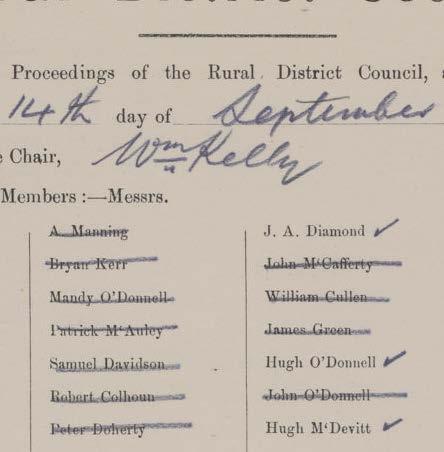 Proceedings of the Rural District Council,
14th day of September
Chair, Wm Kelly
Members :—Messrs.
A. Manning
Bryan Kerr
Mandy O'Donnell
Patrick M'Auley
Samuel Davidson
Robert Colhoun
Peter Doherty
J. A. Diamond ✓
John M'Cafferty
William Cullen
James Green
Hugh O'Donnell ✓
John O'Donnell
Hugh M'Devitt ✓